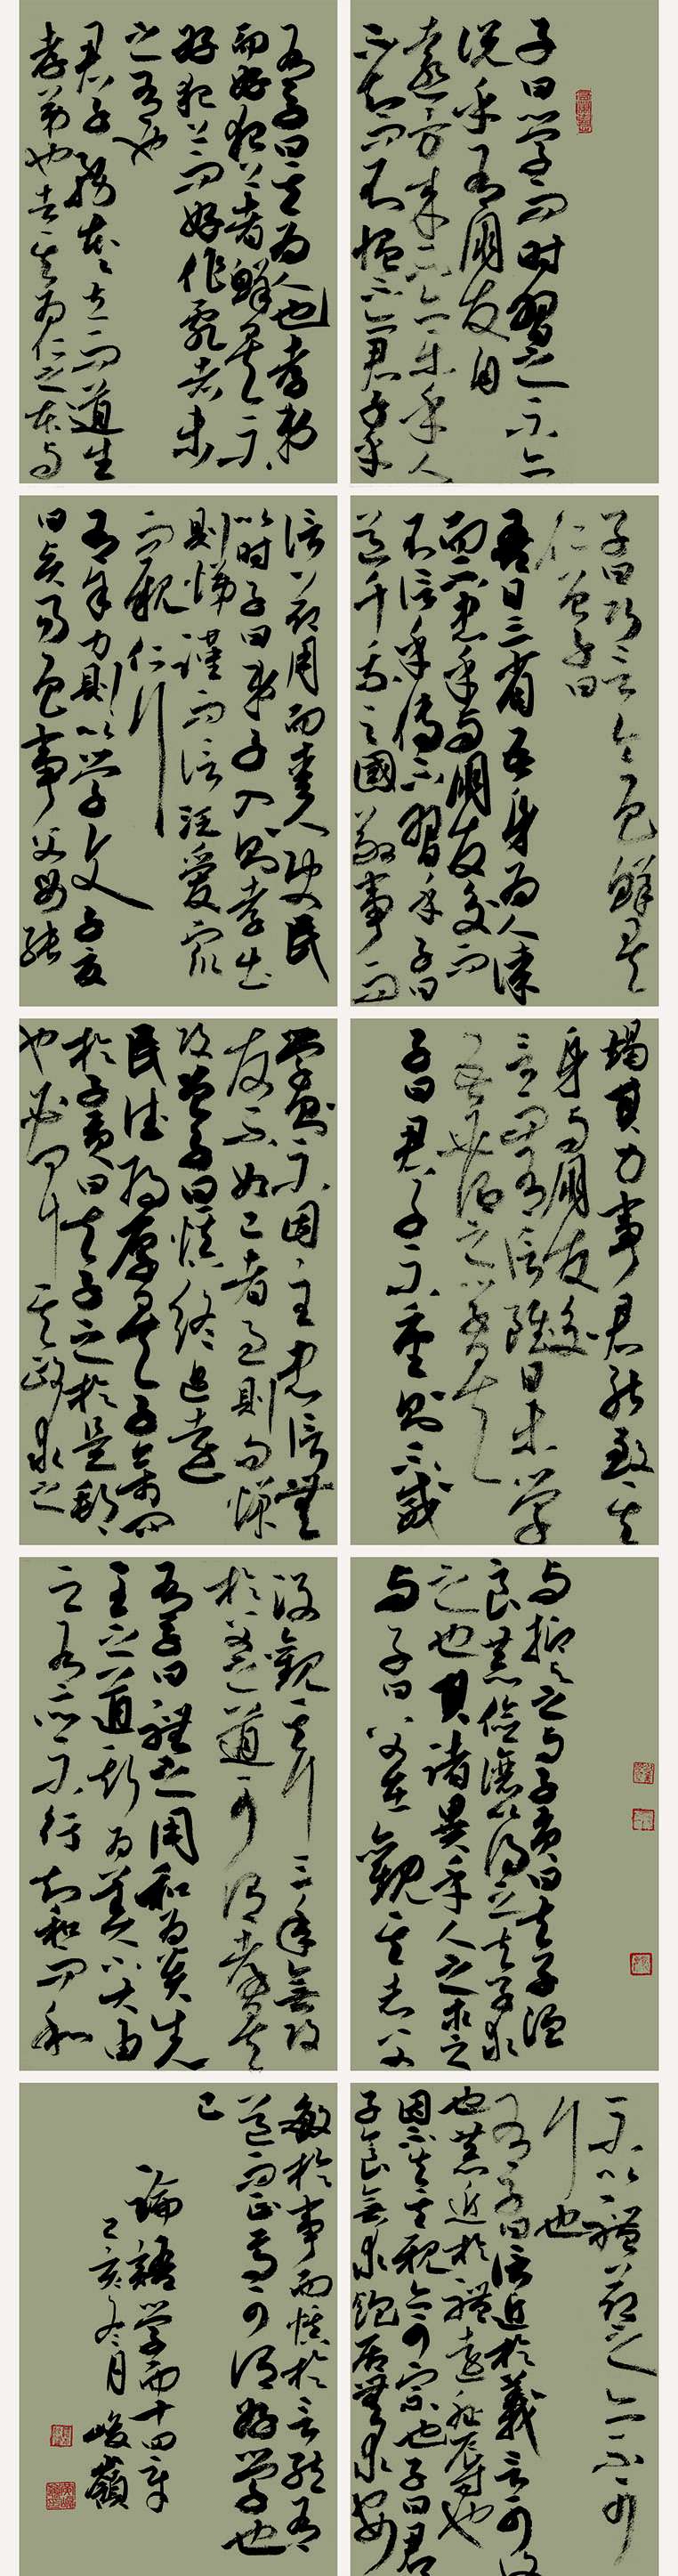 子曰學而時習之不亦
說乎有朋友自
遠方來不亦樂乎人
不知而不愠不亦君子乎
有子曰其為人也孝弟
而好犯上者鮮矣不
好犯上而好作亂者未
之有也
君子務本本立而道生
孝弟也者其為仁之本与
子曰巧言令色鮮矣
仁曾子曰
吾日三省吾身為人謀
而不忠乎与朋友交而
不信乎傳不習乎子曰
道千乘之國敬事而
信節用而愛人使民
以時子曰弟子入則孝出
則悌謹而信泛愛眾
而親仁行
有余力則以學文子夏
曰賢賢易色事父母能
竭其力事君能致其
身与朋友交
言而有信雖曰未學
吾必謂之學矣
子曰君子不重則不威
學則不固主忠信無
友不如己者過則勿憚
改曾子曰慎終追遠
民德歸厚矣子禽問
於子貢曰夫子之於是邦
也必聞其政求之
与抑与之与子貢曰夫子溫
良恭儉讓以得之夫子之求
之也其諸異乎人之求之
与子曰父在觀其志父
沒觀其行三年無改
於父之道可謂孝矣
有子曰禮之用和為貴先
王之道斯為美小大由
之有所不行知和而和
不以禮節之亦不可
行也
有子曰信近於義言可復
也恭近於禮遠恥辱也
因不失其親亦可宗也子曰君
子食無求飽居無求安
敏於事而慎於言就有
道而正焉可謂好學也
已
論語學而十四章
己亥冬月峻嶺